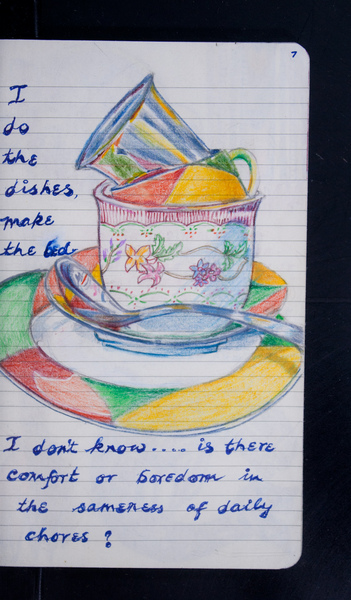 7
I
do
the
dishes,
make
the bed.
I don't know.... is there
comfort or boredom in
the sameness of daily
chores?